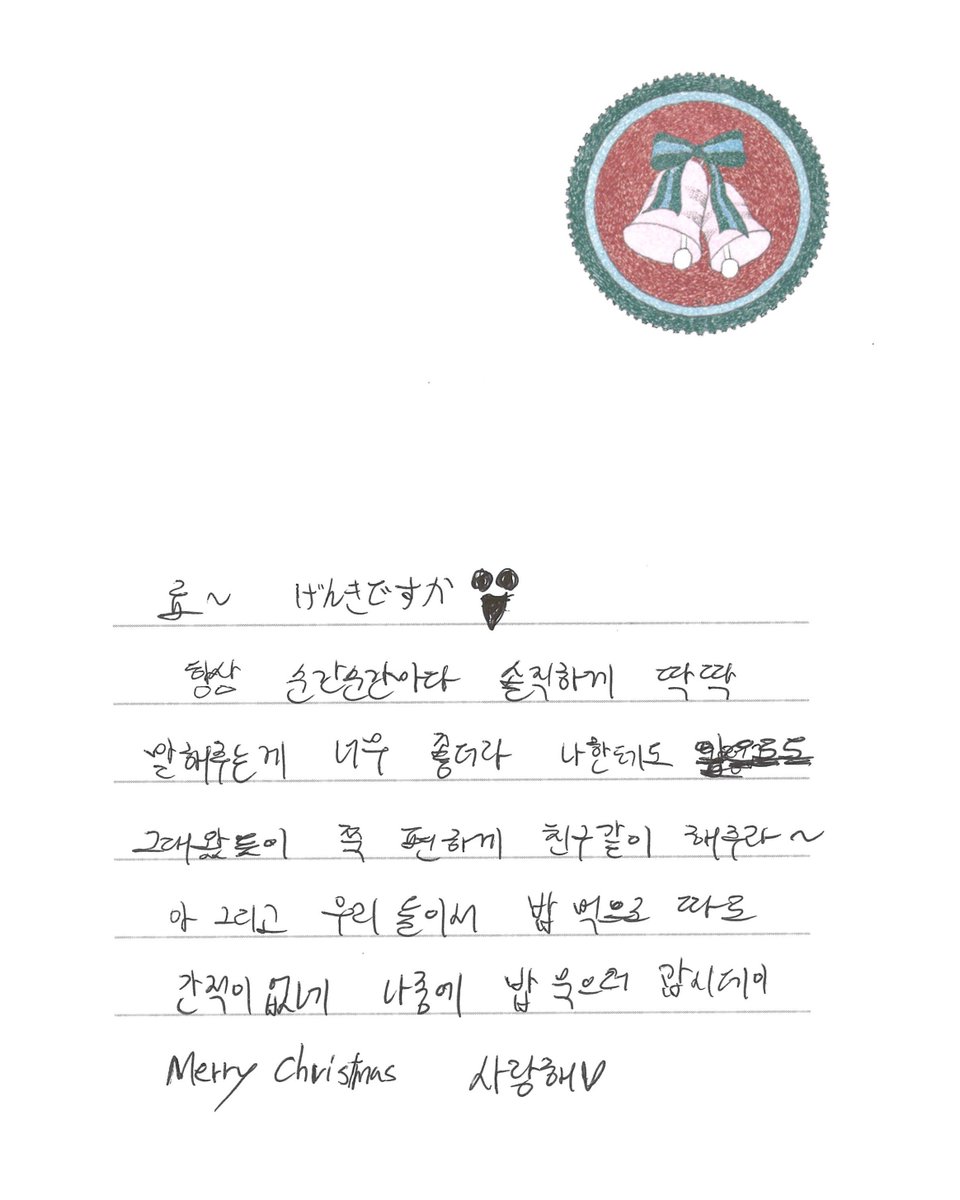 료~ げんきですか
항상 순간순간마다 솔직하게 딱딱
말해주는게 너무 좋더라 나한테도
그래왔듯이 쭉 편하게 친구같이 해주라~
아 그리고 우리 둘이서 밥 먹으로 따로
간적이 없네 나중에 밥 묵으러 갑시데이
Merry Christmas 사랑해♡